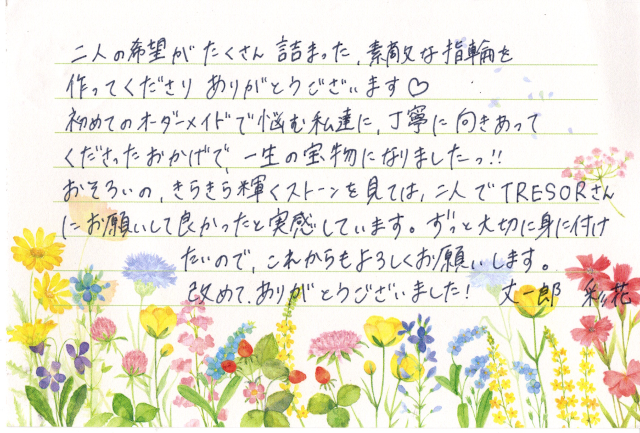 二人の希望がたくさん詰まった、素敵な指輪を
作ってくださり ありがとうございます♡
初めてのオーダーメイドで悩む私達に、丁寧に向きあって
くださったおかげで、一生の宝物になりましたっ!!
おそろいの、きらきら輝くストーンを見ては、二人でTRESORさん
にお願いして良かったと実感しています。ずっと大切に身に付け
たいので、これからもよろしくお願いします。
改めて、ありがとうございました! 丈一郎 彩花